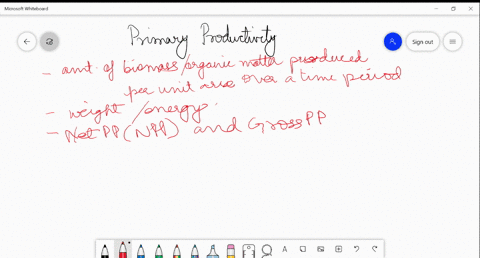 Microsoft Whiteboard
Sign out
Primary Productivity
- amt. of biomass/organic matter produced
per unit area over a time period
- weight/energy.
- Net PP (NPP) and Gross PP
A